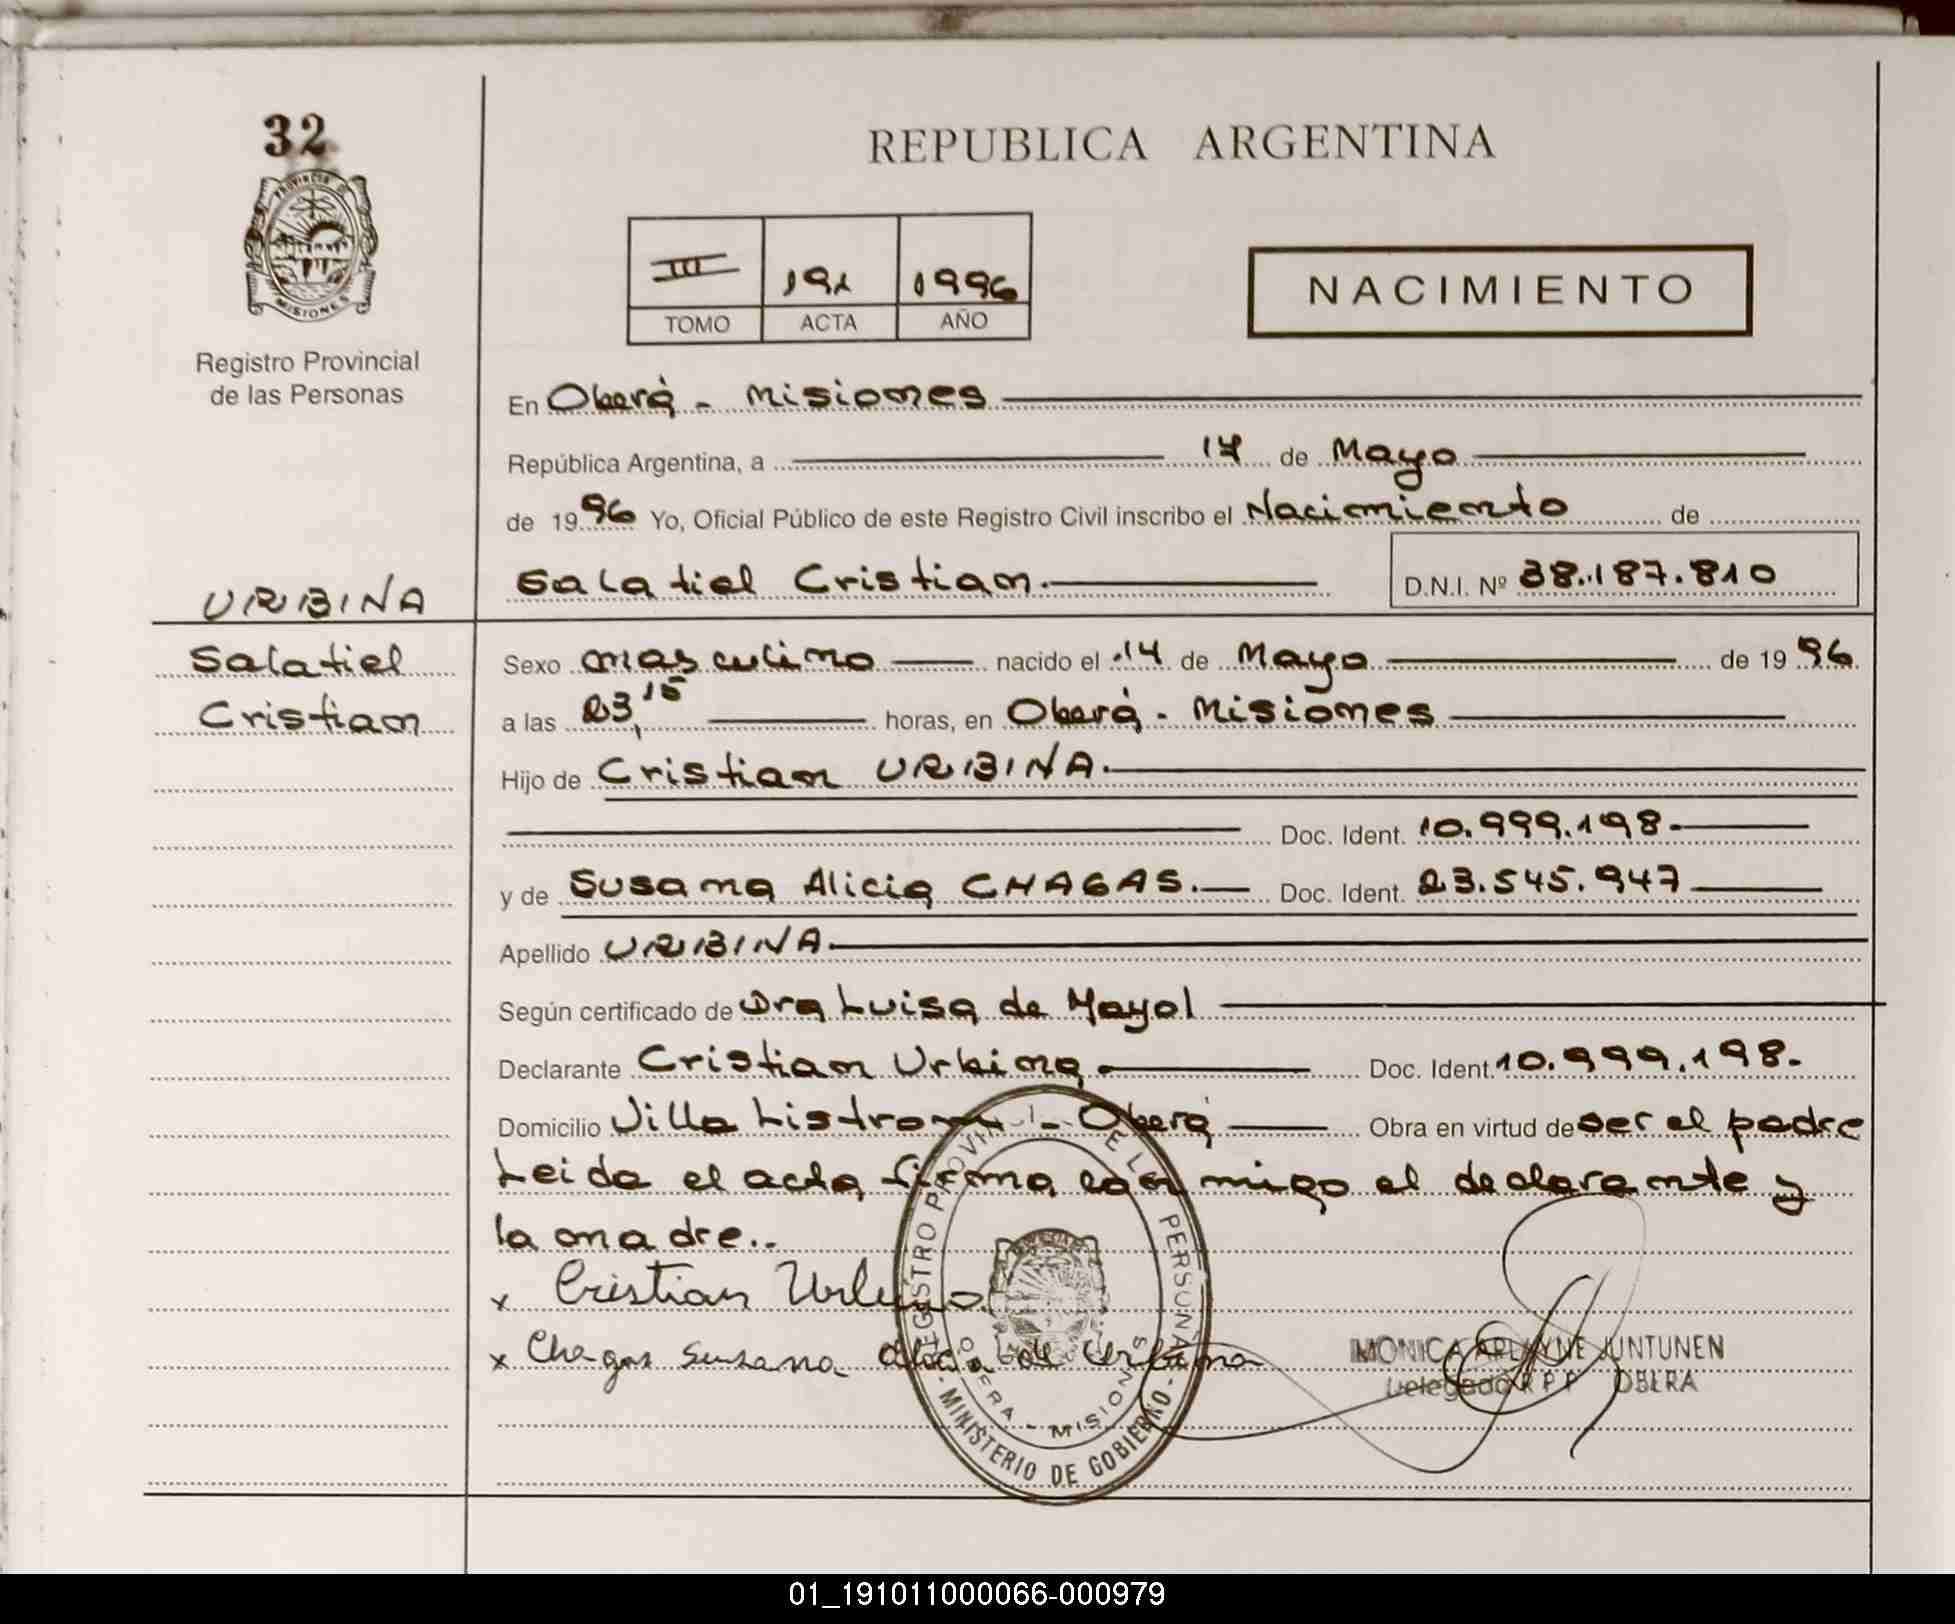 32
PROVINCIA DE
MISIONES
Registro Provincial
de las Personas
REPUBLICA ARGENTINA
III 191 1996
TOMO ACTA AÑO
NACIMIENTO
En Oberá - Misiones
República Argentina, a 17 de Mayo
de 1996 Yo, Oficial Público de este Registro Civil inscribo el Nacimiento de
Salatiel Cristian. D.N.I. Nº 38.187.810
URBINA
Salatiel
Cristian
Sexo masculino nacido el 14 de Mayo de 1996.
a las 23,15 horas, en Oberá - Misiones
Hijo de Cristian URBINA.
Doc. Ident. 10.999.198.
y de Susana Alicia CHAGAS. Doc. Ident. 23.545.947
Apellido URBINA
Según certificado de Dra Luisa de Mayol
Declarante Cristian Urbina. Doc. Ident. 10.999.198.
Domicilio Villa - Oberá Obra en virtud de ser el padre
Leida el acta firma con migo el declarante y
la madre..
x Cristian Urbina
x Chagas Susana Alicia de Urbina
REGISTRO PROVINCIAL DE LAS PERSONAS
OBERA - MISIONES
- MINISTERIO DE GOBIERNO -
MONICA JUNTUNEN
Delegado R P P OBERA
01_191011000066-000979